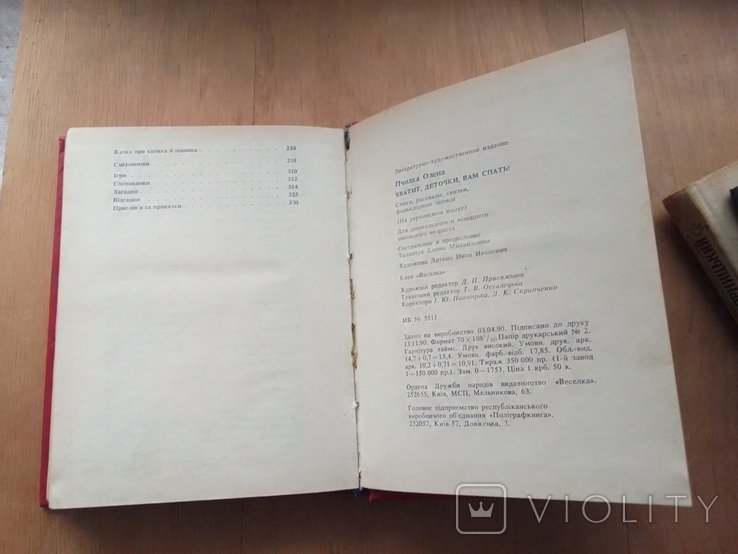 Казка про котика й півника 254
Сміховинки 258
Ігри 310
Спотиканки 312
Загадки 314
Відгадки 325
Прислів'я та приказки 330
Литературно-художественное издание
Пчилка Олена
ХВАТИТ, ДЕТОЧКИ, ВАМ СПАТЬ!
Стихи, рассказы, сказки,
фольклорные записи
(На украинском языке)
Для дошкольного и младшего
школьного возраста
Составление и предисловие
Таланчук Елены Михайловны
Художник Литвин Иван Иванович
Киев «Веселка»
Художній редактор Д. П. Присяжнюк
Технічний редактор Т. В. Осталецька
Коректори І. Ю. Павлоцька, Л. К. Скрипченко
ИБ № 5511
Здано на виробництво 03.04.90. Підписано до друку
13.11.90. Формат 70×108 1/32. Папір друкарський № 2.
Гарнітура таймс. Друк високий. Умовн. друк. арк.
14,7+0,7=15,4. Умовн. фарб.-відб. 17,85. Обл.-вид.
арк. 10,2+0,71=10,91. Тираж 350 000 пр. (1-й завод
1—150 000 пр.). Зам. 0—1753. Ціна 1 крб. 50 к.
Ордена Дружби народів видавництво «Веселка».
252655, Київ, МСП, Мельникова, 63.
Головне підприємство республіканського
виробничого об'єднання «Поліграфкнига».
252057, Київ-57, Довженка, 3.
VIOLITY